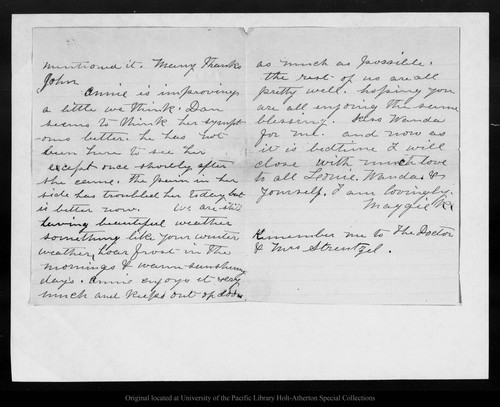 mentioned it. Many thanks
John
Annie is improving
a little we think. Dan
seems to think her sympt
oms better. he has not
been here to see her
except once shortly after
she came. The pain in her
side has troubled her today but
is better now. We are still
having beautiful weather
something like your winter
weather, hoar frost in the
mornings & warm sunshiny
days. Annie enjoys it very
much and keeps out of doors
as much as possible.
the rest of us are all
pretty well. hoping you
are all enjoying the same
blessing. Kiss Wanda
for me. and now as
it is bedtime I will
close with much love
to all Louie. Wanda &
yourself. I am lovingly
Maggie
Remember me to The Doctor
& Mrs Strentzel.
Original located at University of the Pacific Library Holt-Atherton Special Collections